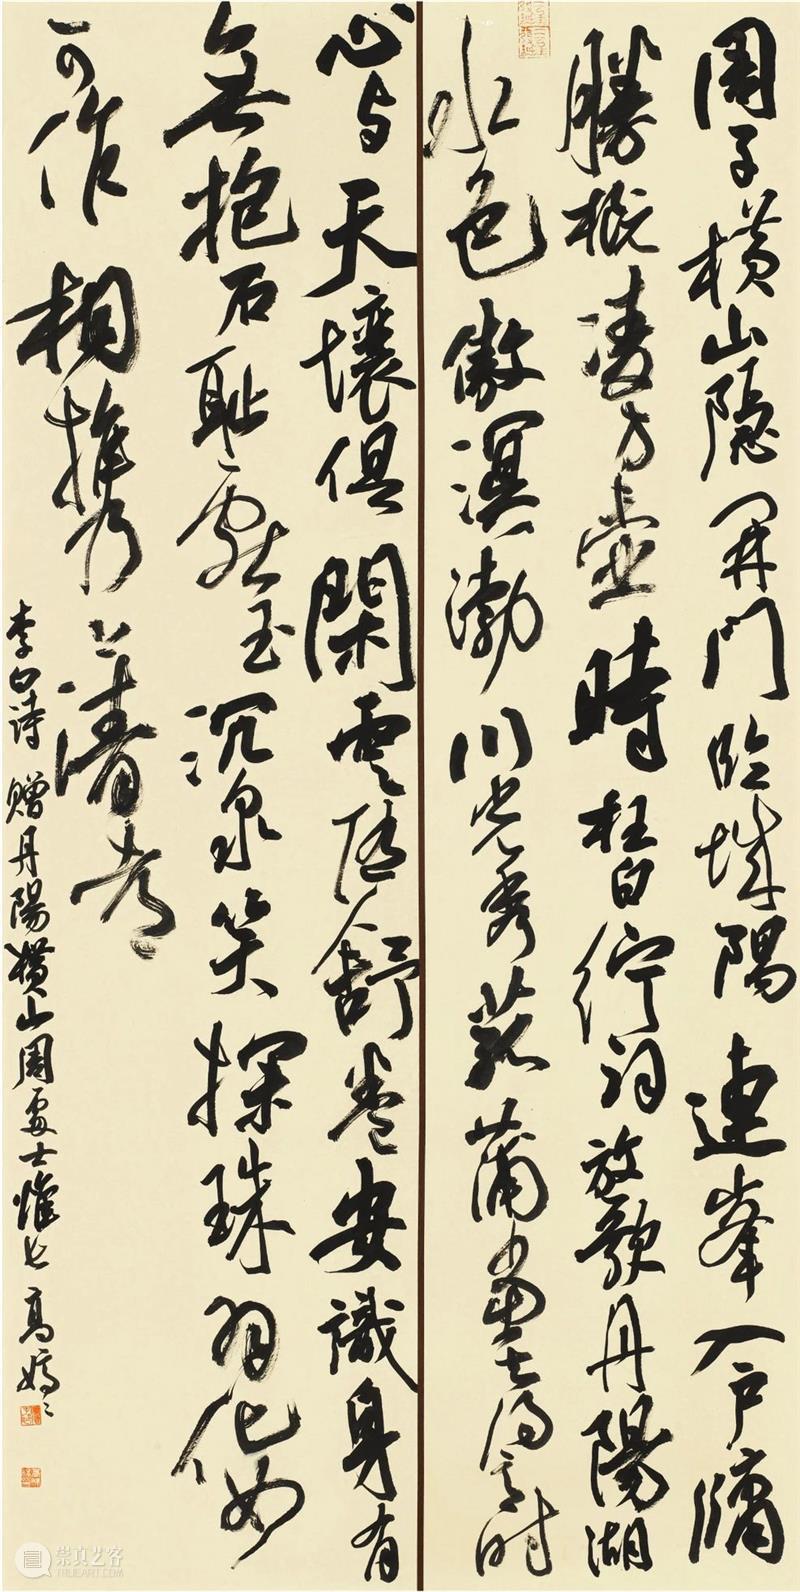 周子横山隐開門臨城隅連峯入户牖
勝概凌方壺時枉白紵詞放歌丹陽湖
水色傲溟渤川光秀菰蒲當其得意时
心与天壤俱閑雲随舒卷安識身有
無抱石耻獻玉沉泉笑探珠羽化如
可作相携上清都
李白詩 贈丹陽横山周處士惟長 高
崇真艺客
TRUEART.COM